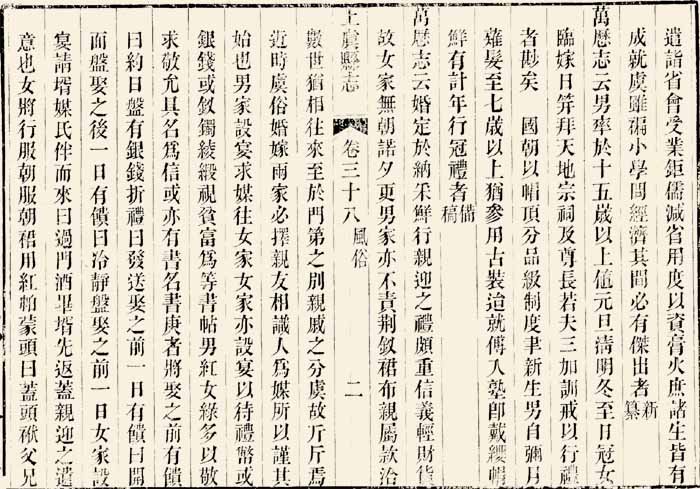 遺詣省會受業鉅儒減省用度以資膏火庶諸生皆有
成就虞雖褊小學問經濟其間必有傑出者新纂
萬厯志云男率於十五歲以上値元旦淸明冬至日冠女
臨嫁日筓拜天地宗祠及尊長若夫三加訓戒以行禮
者尠矣　國朝以帽頂分品級制度聿新生男自彌月
薙髮至七歲以上猶參用古裝迨就傅入塾卽戴纓帽
鮮有計年行冠禮者備稿
萬厯志云婚定於納采鮮行親迎之禮頗重信義輕財貨
故女家無朝諾夕更男家亦不責荆釵裙布親屬款洽
上虞縣志　卷三十八　風俗　二
數世猶相往來至於門第之別親戚之分虞故斤斤焉
近時虞俗婚嫁兩家必擇親友相識人爲媒所以謹其
始也男家設宴求媒往女家女家亦設宴以待禮幣或
銀錢或釵鐲綾緞視貧富爲等書帖男紅女綠多以敬
求敬允具名爲信或亦有書名書庚者將娶之前有饋
曰約日盤有銀錢折禮曰發送娶之前一日有饋曰開
面盤娶之後一日有饋曰冷靜盤娶之前一日女家設
宴請壻媒氏伴而來曰過門酒畢壻先返蓋親迎之遺
意也女將行服朝服朝裙用紅帕蒙頭曰蓋頭袱父兄